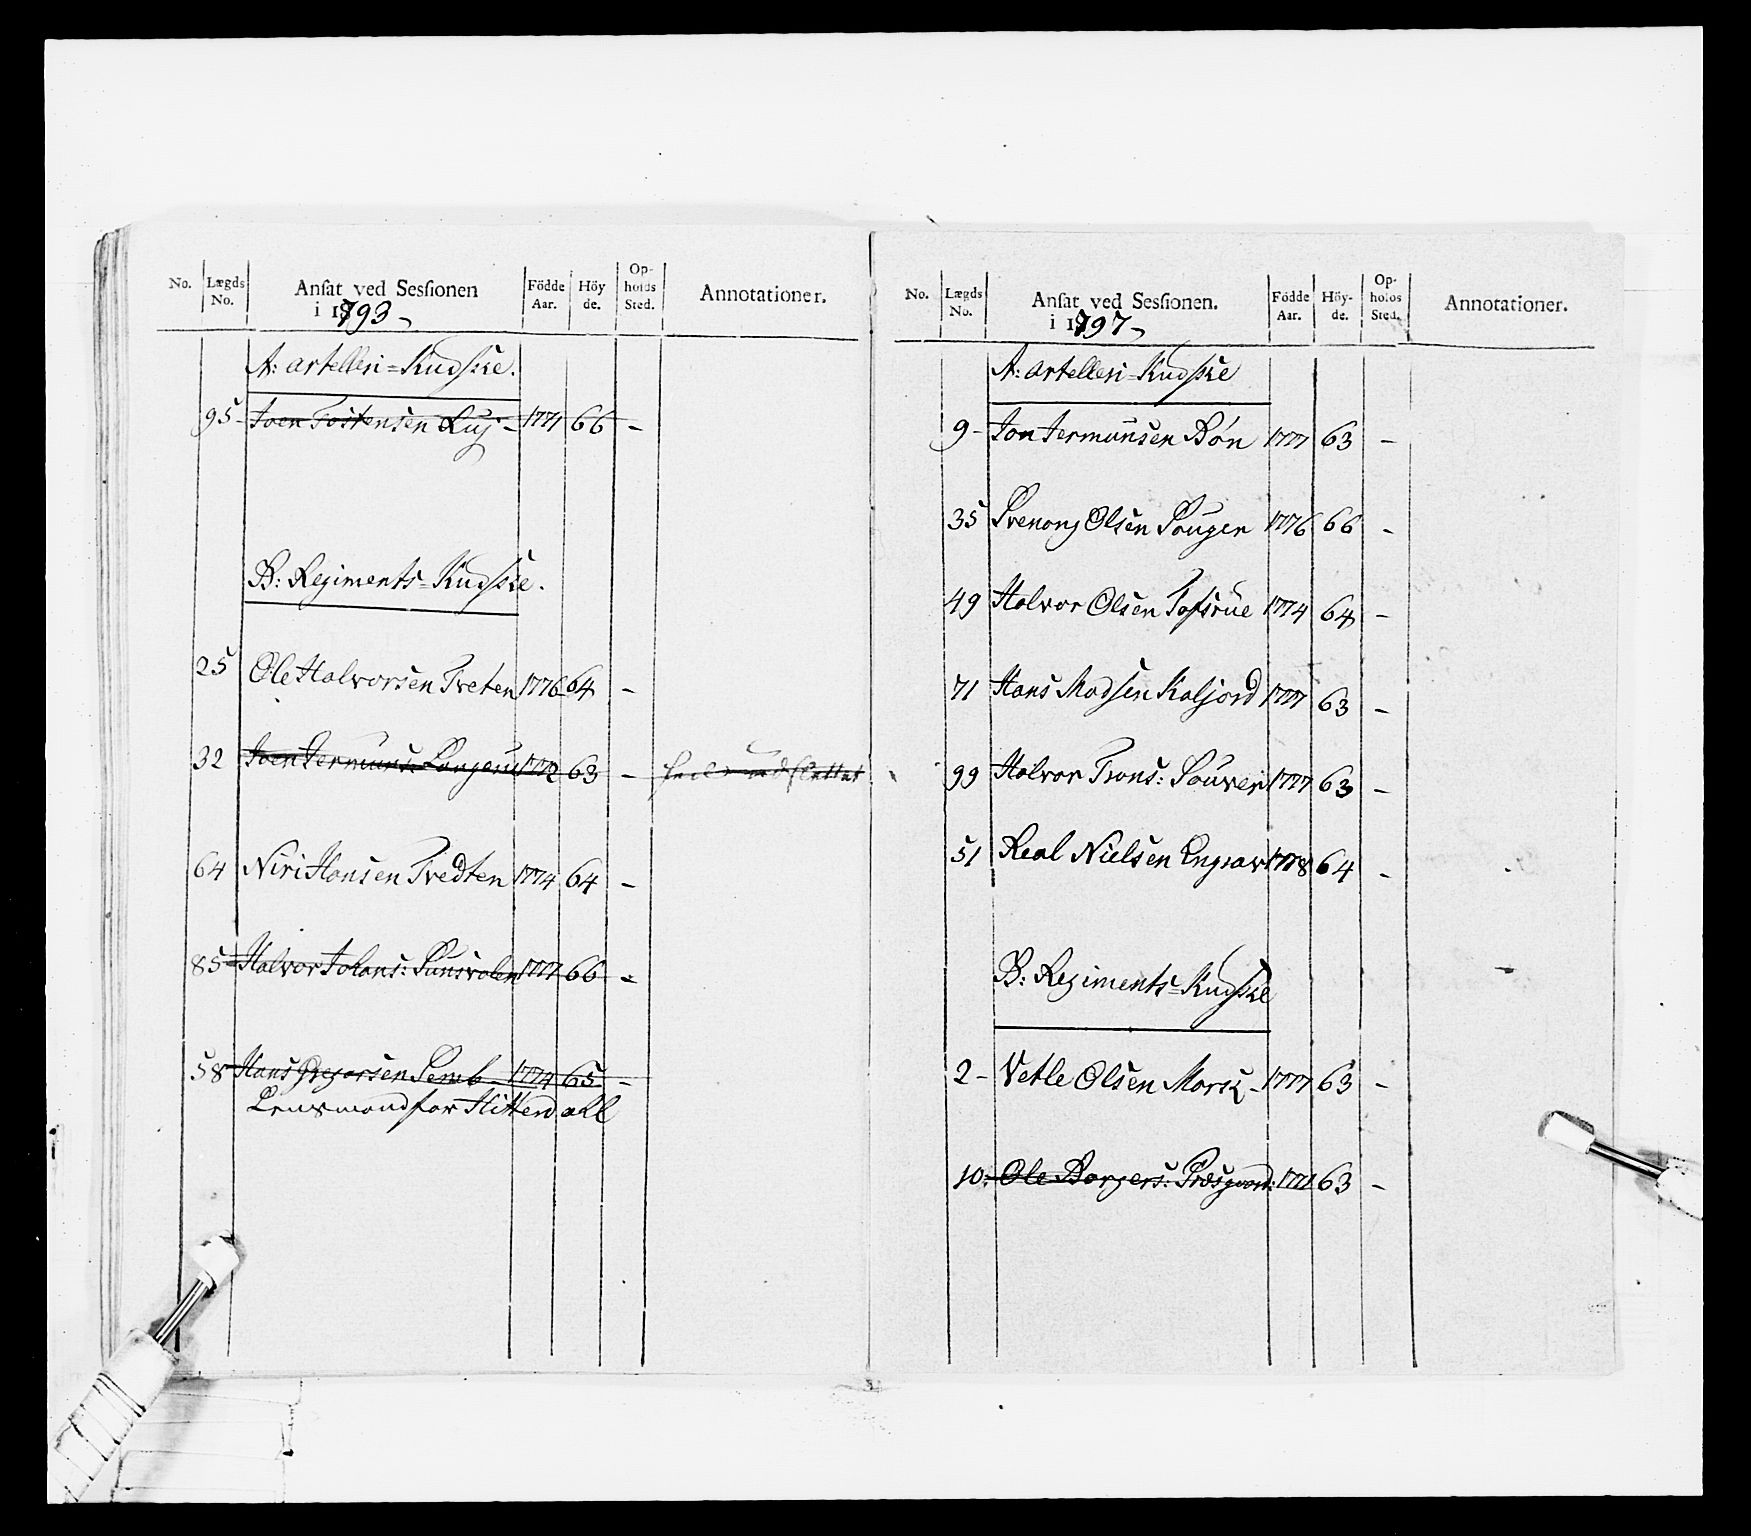 No. Lægds No. Ansat ved Sessionen i 1793 Födde Aar. Höyde. Opholds Sted. Annotationer.
A: artelleri=Kudske.
95 - Joen Tostensen Luj - 1771 66 -
B: Regiments=Kudske.
25 Ole Halvorsen Tveten 1776 64 -
32 Joen Jermuns: 1772 63 -
64 Niri Hansen Tvedten 1774 64 -
85 Halvor Johans: 1777 66 -
58 Hans Gregorsen Semb 1774 65 -
Lensmand for Hitterdahl
No. Lægds No. Ansat ved Sessionen. i 1797 Födde Aar. Höy-de. Op-holds Sted. Annotationer.
A: artelleri=Kudske
9 - Jon Jermunsen Bön 1777 63 -
35 Svenong Olsen 1776 66 -
49 Halvor Olsen Tofsrue 1774 64 -
71 Hans Madsen Kaljord 1777 63 -
99 Halvor Trons: 1777 63 -
51 Real Nielsen Engrav 1778 64 -
B: Regiments=Kudske
2 - Vetle Olsen Marsk - 1777 63 -
10: Ole Borgers: Præsgaard: 1771 63 -